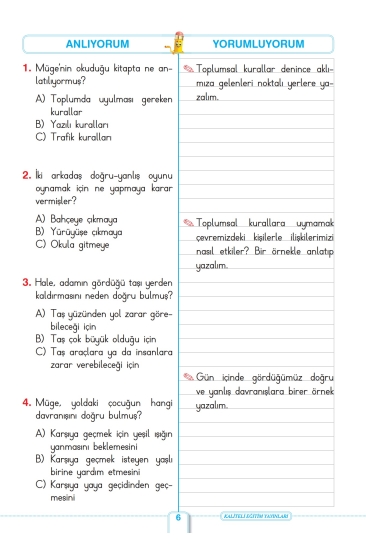 ANLIYORUM
1. Müge'nin okuduğu kitapta ne an-
latılıyormuş?
A) Toplumda uyulması gereken
kurallar
B) Yazılı kuralları
C) Trafik kuralları
2. İki arkadaş doğru-yanlış oyunu
oynamak için ne yapmaya karar
vermişler?
A) Bahçeye çıkmaya
B) Yürüyüşe çıkmaya
C) Okula gitmeye
3. Hale, adamın gördüğü taşı yerden
kaldırmasını neden doğru bulmuş?
A) Taş yüzünden yol zarar göre-
bileceği için
B) Taş çok büyük olduğu için
C) Taş araçlara ya da insanlara
zarar verebileceği için
4. Müge, yoldaki çocuğun hangi
davranışını doğru bulmuş?
A) Karşıya geçmek için yeşil ışığın
yanmasını beklemesini
B) Karşıya geçmek isteyen yaşlı
birine yardım etmesini
C) Karşıya yaya geçidinden geç-
mesini
YORUMLUYORUM
Toplumsal kurallar denince aklı-
mıza gelenleri noktalı yerlere ya-
zalım.
Toplumsal kurallara uymamak
çevremizdeki kişilerle ilişkilerimizi
nasıl etkiler? Bir örnekle anlatıp
yazalım.
Gün içinde gördüğümüz doğru
ve yanlış davranışlara birer örnek
yazalım.
6
KALİTELİ EĞİTİM YAYINLARI